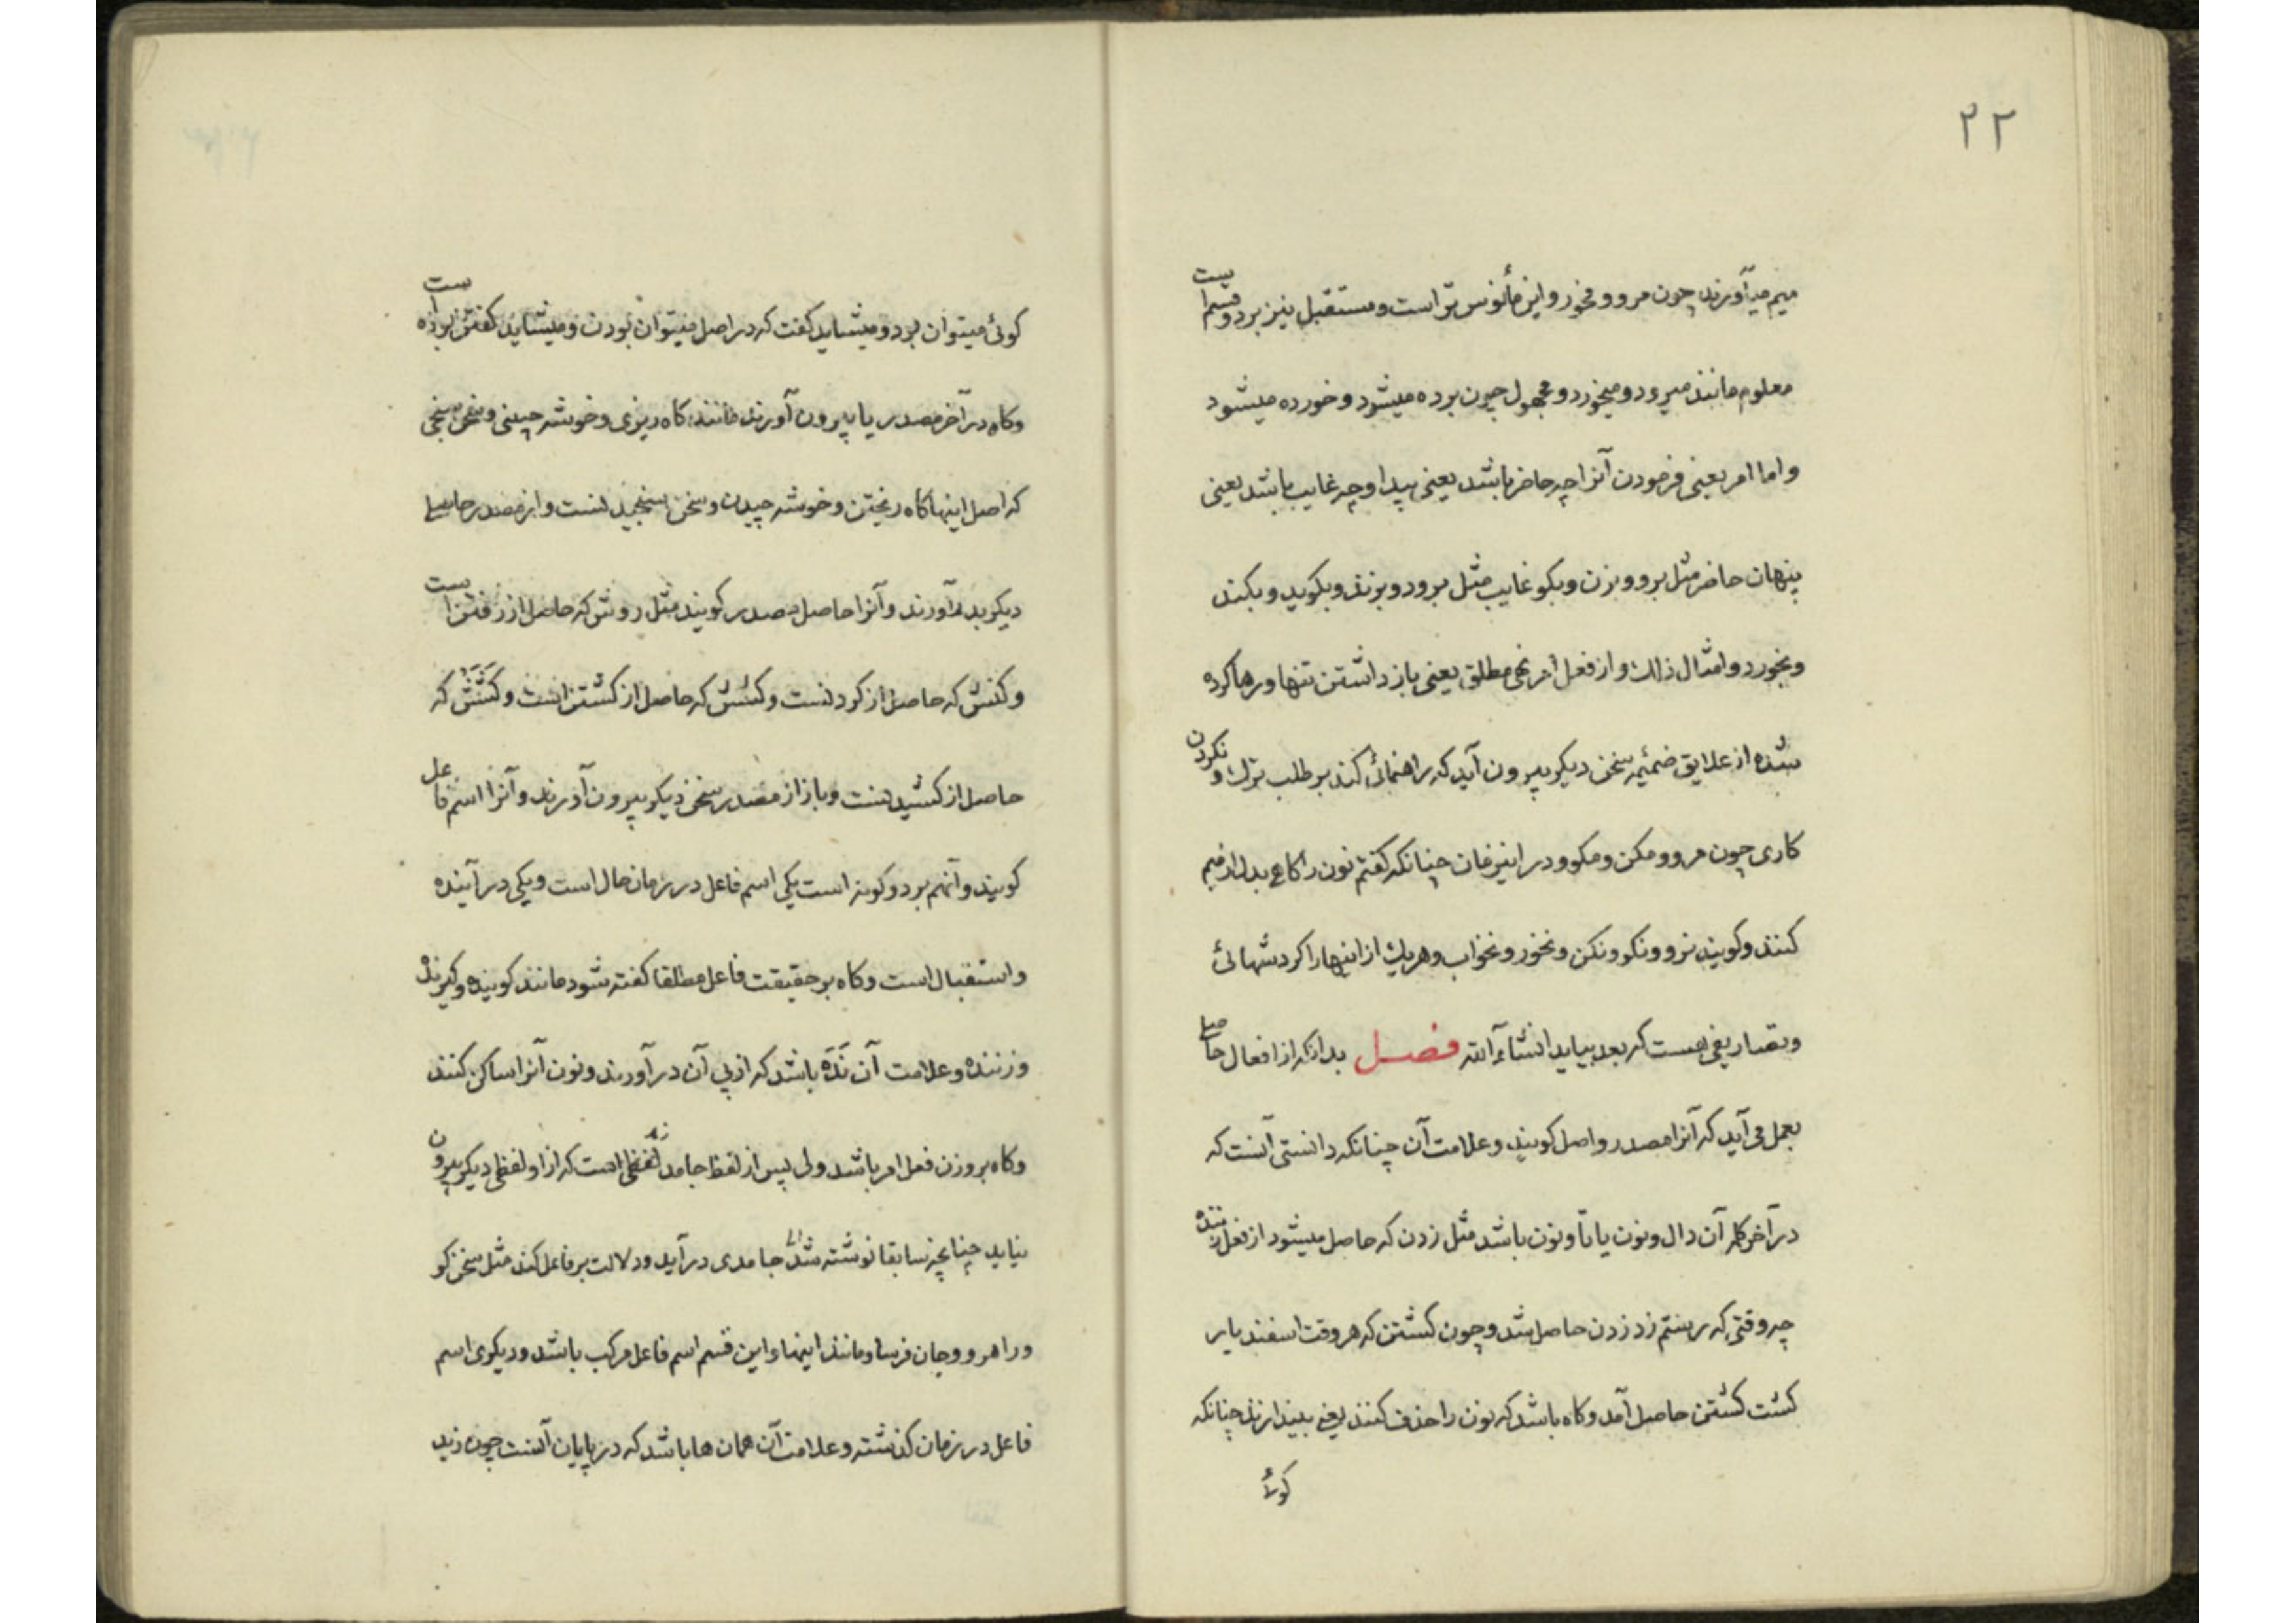 ۲۲
میم میآورند چون مرو و مخور و این مأنوس تر است و مستقبل نیز بر دو قسم است
معلوم مانند میرود و میخورد و مجهول چون برده میشود و خورده میشود
و اما امر یعنی فرمودن آنرا چه حاضر باشد یعنی پیدا و چه غایب باشد یعنی
پنهان حاضر مثل برو و بزن و بکو غایب مثل برود و بزند و بکوید و بکند
و بخورد و امثال ذلك و از فعل امر نهی مطلق یعنی باز داشتن تنها و رها کرده
شده از علایق ضمیمه سخن دیکر بیرون آید که راهنمائی کند بر طلب ترك و نکردن
کاری چون مرو و مکن و مکو و در این زمان چنانکه کفتم نون را کاهی بدل از میم
کنند و کویند نرو و نکو و نکن و نخور و نخواب و هریك از اینها را کردشهائی
و تصاریفی هست که بعد بیاید انشاء الله فصل بدانکه از افعال حاصلی
بعمل می آید که آنرا مصدر و اصل کویند و علامت آن چنانکه دانستی آنست که
در آخر کلمه آن دال و نون یا تا و نون باشد مثل زدن که حاصل میشود از فعل زننده
چه وقتی که رستم زد زدن حاصل شد و چون کشتن که هر وقت اسفندیار
کشت کشتن حاصل آمد و کاه باشد که نون را حذف کنند یعنی بیندازند چنانکه
کوئی
کوئی میتوان برد و میشاید کفت که در اصل میتوان بردن و میشاید کفتن بوده است
و کاه در آخر مصدر یا بیرون آورند مانند کاه ریزی و خوشه چینی و سخن سنجی
که اصل اینها کاه ریختن و خوشه چیدن و سخن سنجیدنست و از مصدر حاصلی
دیکر بدر آورند و آنرا حاصل مصدر کویند مثل روش که حاصل از رفتن است
و کنش که حاصل از کردنست و کشش که حاصل از کشتن است و کشش که
حاصل از کشیدنست و باز از مصدر سخن دیکر بیرون آورند و آنرا اسم فاعل
کویند و آنهم بر دو کونه است یکی اسم فاعل در زمان حال است و یکی در آینده
و استقبال است و کاه بر حقیقت فاعل مطلقا کفته شود مانند کوینده و کیرنده
و زننده و علامت آن نَدَه باشد که از پی آن در آورند و نون آنرا ساکن کنند
و کاه بر وزن فعل امر باشد ولی پس از لفظ جامد لفظی است که از او لفظی دیکر بیرون
نیاید چنانچه سابقا نوشته شد جامدی در آید و دلالت بر فاعل کند مثل سخن کو
و راهرو و جان فرسا و مانند اینها و این قسم اسم فاعل مرکب باشد و دیکری اسم
فاعل در زمان کذشته و علامت آن همان ها باشد که در پایان آنست چون زید